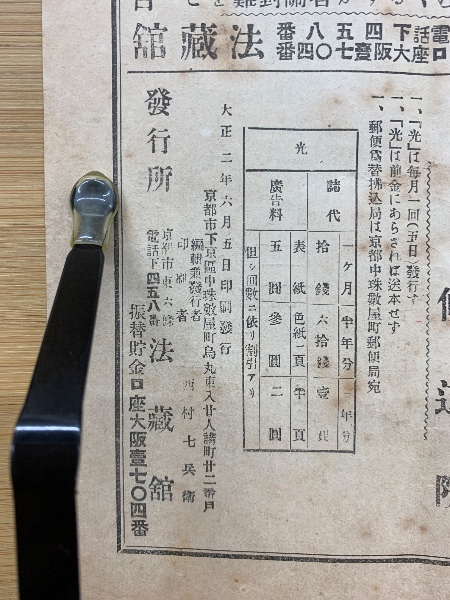 電話下四五八番
振替口座大阪壹七〇四番
法藏館
一、「光」は毎月一回(五日)發行す
一、「光」は前金にあらされば送本せず
一、郵便爲替拂込局は京都中珠數屋町郵便局宛
光
誌代
一ケ月 半年分 一年分
拾錢 六拾錢 壹圓
廣告料
表紙 色紙一頁 半頁
五圓 參圓 二圓
但シ回數ニ依リ割引アリ
大正二年六月五日印刷發行
京都市下京區中珠數屋町烏丸東入廿人講町廿二番戶
編輯兼發行者
印刷者
西村七兵衛
發行所
京都市東六條
電話下四五八番
法藏館
振替貯金口座大阪壹七〇四番